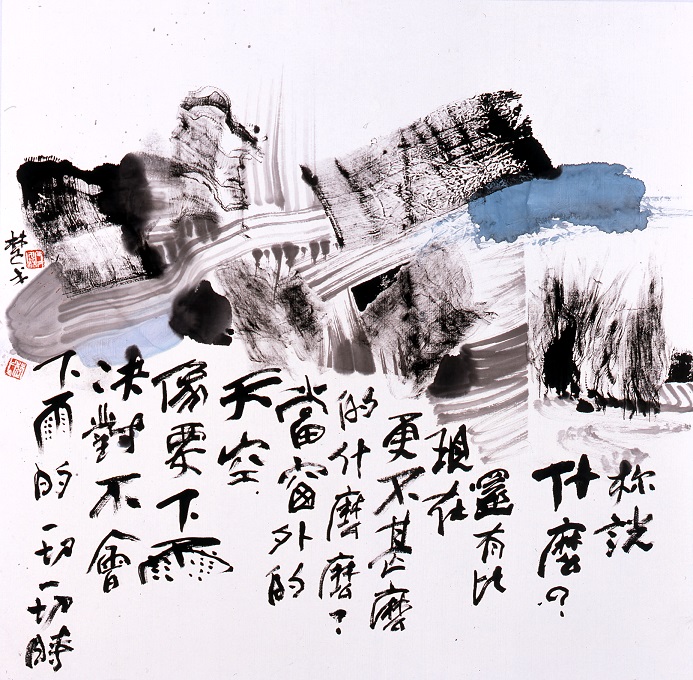 你說
什麼?
還有比
現在
更不甚麼
的什麼麼?
當窗外的
天空
像要下雨
決對不會
下雨的一切一切時
楚戈